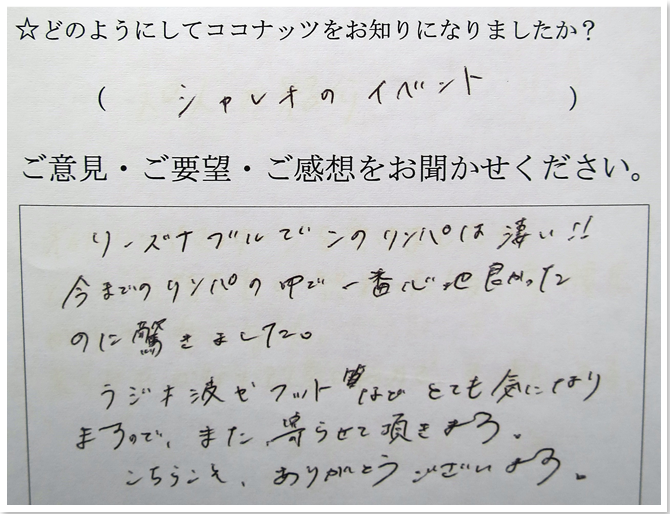 ☆どのようにしてココナッツをお知りになりましたか?
( シャレオの イベント )
ご意見・ご要望・ご感想をお聞かせください。
リーズナブルでこのリンパは凄い!!
今までのリンパの中で一番心地良かった
のに驚きました。
ラジオ波やフット など とても気になり
ますので、また、寄らせて頂きます。
こちらこそ、ありがとうございます。